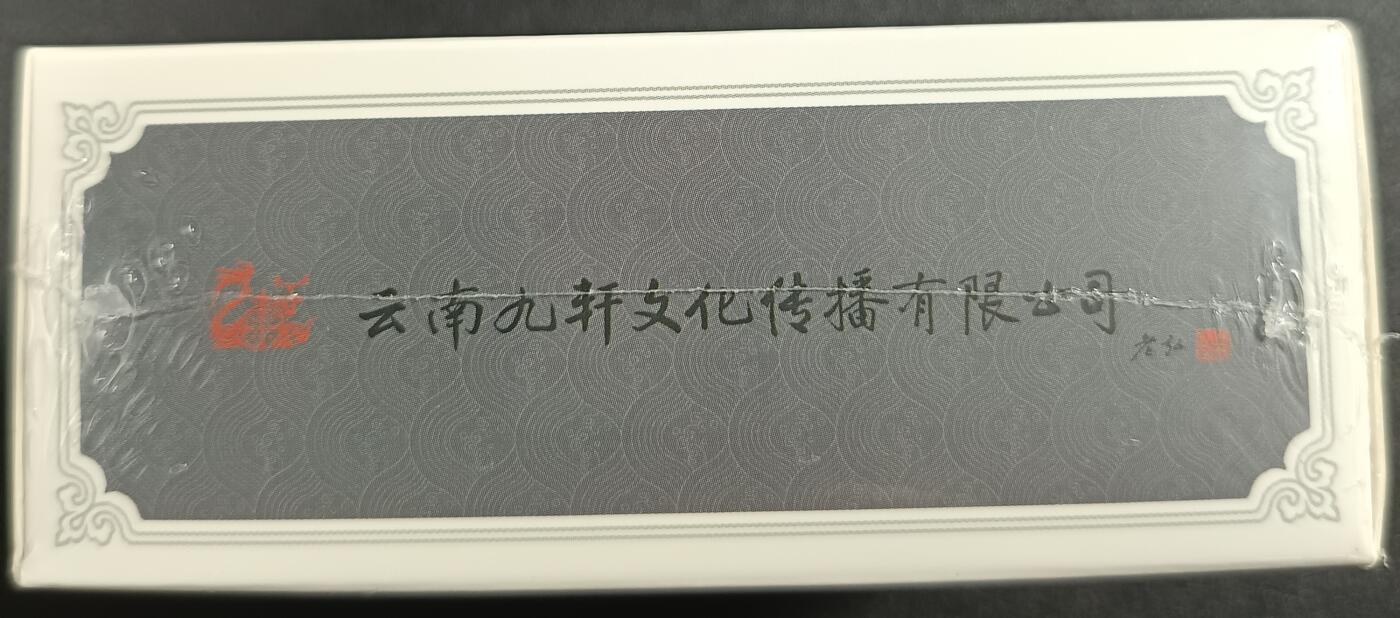 云南九轩文化传播有限公司